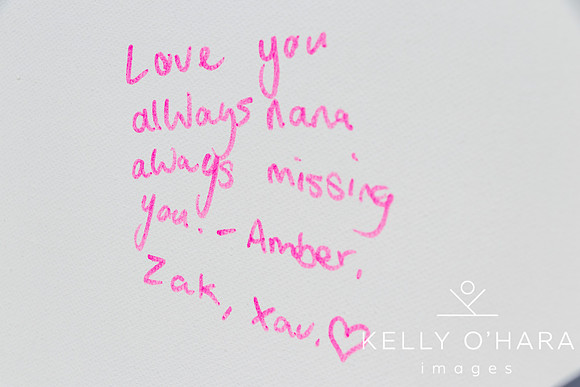 Love you
allways nana
aways missing
you! - Amber,
Zak, Xav. ♡
KELLY O'HARA
images